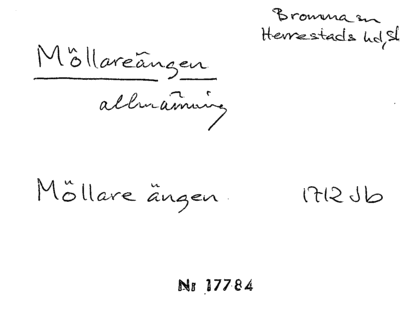 Bromma sn
Herrestads hd, Sk
Möllareängen
allmänning
Möllare ängen 1712 Jb
Nr 17784